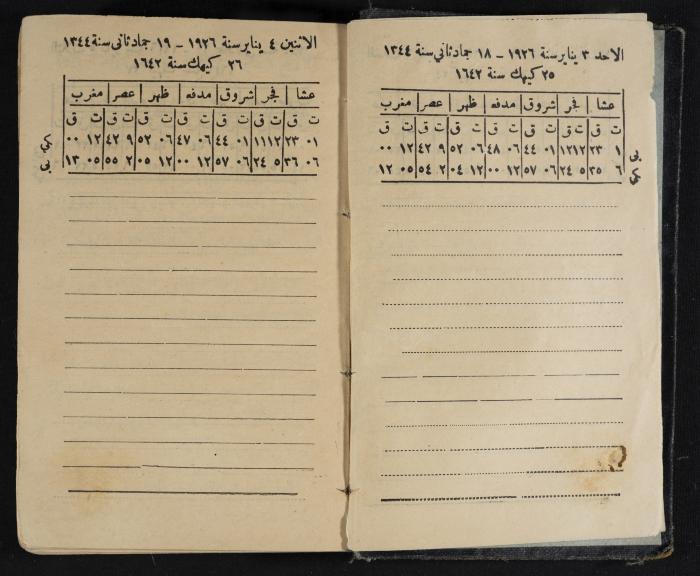 الاحد ٣ يناير سنة ١٩٢٦ – ١٨ جماد ثاني سنة ١٣٤٤
٢٥ كيهك سنة ١٦٤٢
عشا فجر شروق مدفعه ظهر عصر مغرب
ت ق ت ق ت ق ت ق ت ق ت ق ت ق
١ ٢٣ ١٢ ١٢ ٠١ ٤٤ ٠٦ ٤٨ ٠٦ ٥٢ ٩ ٤٢ ١٢ ٠٠
٦ ٣٥ ٥ ٢٤ ٠٦ ٥٧ ١٢ ٠٠ ١٢ ٠٤ ٢ ٥٤ ٠٥ ١٢
الاثنين ٤ يناير سنة ١٩٢٦ – ١٩ جماد ثاني سنة ١٣٤٤
٢٦ كيهك سنة ١٦٤٢
عشا فجر شروق مدفعه ظهر عصر مغرب
ت ق ت ق ت ق ت ق ت ق ت ق ت ق
٠١ ٢٣ ١٢ ١١ ٠١ ٤٤ ٠٦ ٤٧ ٠٦ ٥٢ ٩ ٤٢ ١٢ ٠٠
٠٦ ٣٦ ٥ ٢٤ ٠٦ ٥٧ ١٢ ٠٠ ١٢ ٠٥ ٢ ٥٥ ٠٥ ١٣